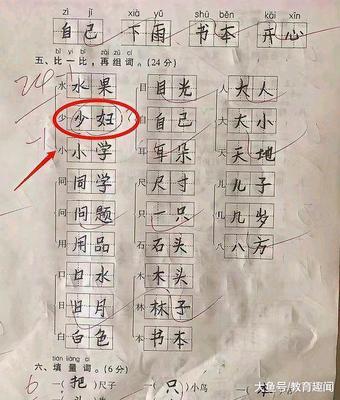 zì jǐ xià yǔ shū běn kāi xīn
自己 下雨 书本 开心
bǐ yì bǐ zài zǔ cí
五、比一比，再组词。(24分)
水 水果 目 目光 人 大人
少 少妇 自 自己 大 大小
小 小学 耳 耳朵 天 天地
同 同学 尺 尺寸 儿 儿子
问 问题 只 一只 几 几岁
用 用品 石 石头 八 八方
口 口水 木 木头
日 日月 林 林子
白 白色 本 书本
tián liàng cí
六、填量词。(6分)
一(把)尺子 一(只)小鸟
大鱼号/教育趣闻